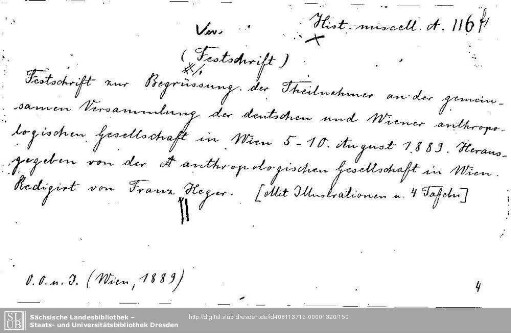 Ver.
Hist. miscell. A. 116
(Festschrift)
Festschrift zur Begrüssung der Theilnehmer an der gemein-
samen Versammlung der deutschen und Wiener anthropo-
logischen Gesellschaft in Wien 5-10. August 1889. Heraus-
gegeben von der anthropologischen Gesellschaft in Wien.
Redigirt von Franz Heger. [Mit Illustrationen u. 4 Tafeln]
O. O. u. J. (Wien, 1889)
4
SLUB
Sächsische Landesbibliothek –
Staats- und Universitätsbibliothek Dresden